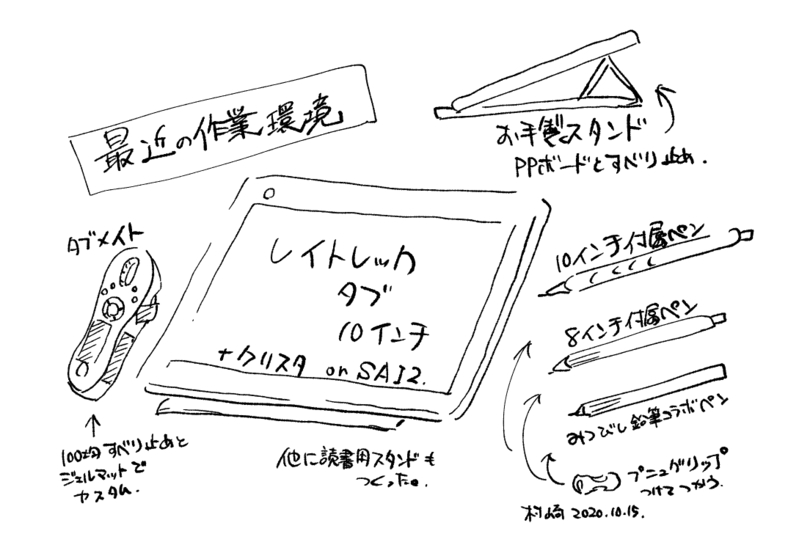 最近の作業環境
お手製スタンド
PPボードとすべり止め.
タブメイト
レイトレック
タブ
10インチ
+クリスタ or SAI2.
10インチ付属ペン
8インチ付属ペン
みつびし鉛筆コラボペン
プニュグリップ
つけてつかう.
100均すべり止めと
ジェルマットで
カスタム.
他に読書用スタンドも
つくった。
村崎 2020.10.15.